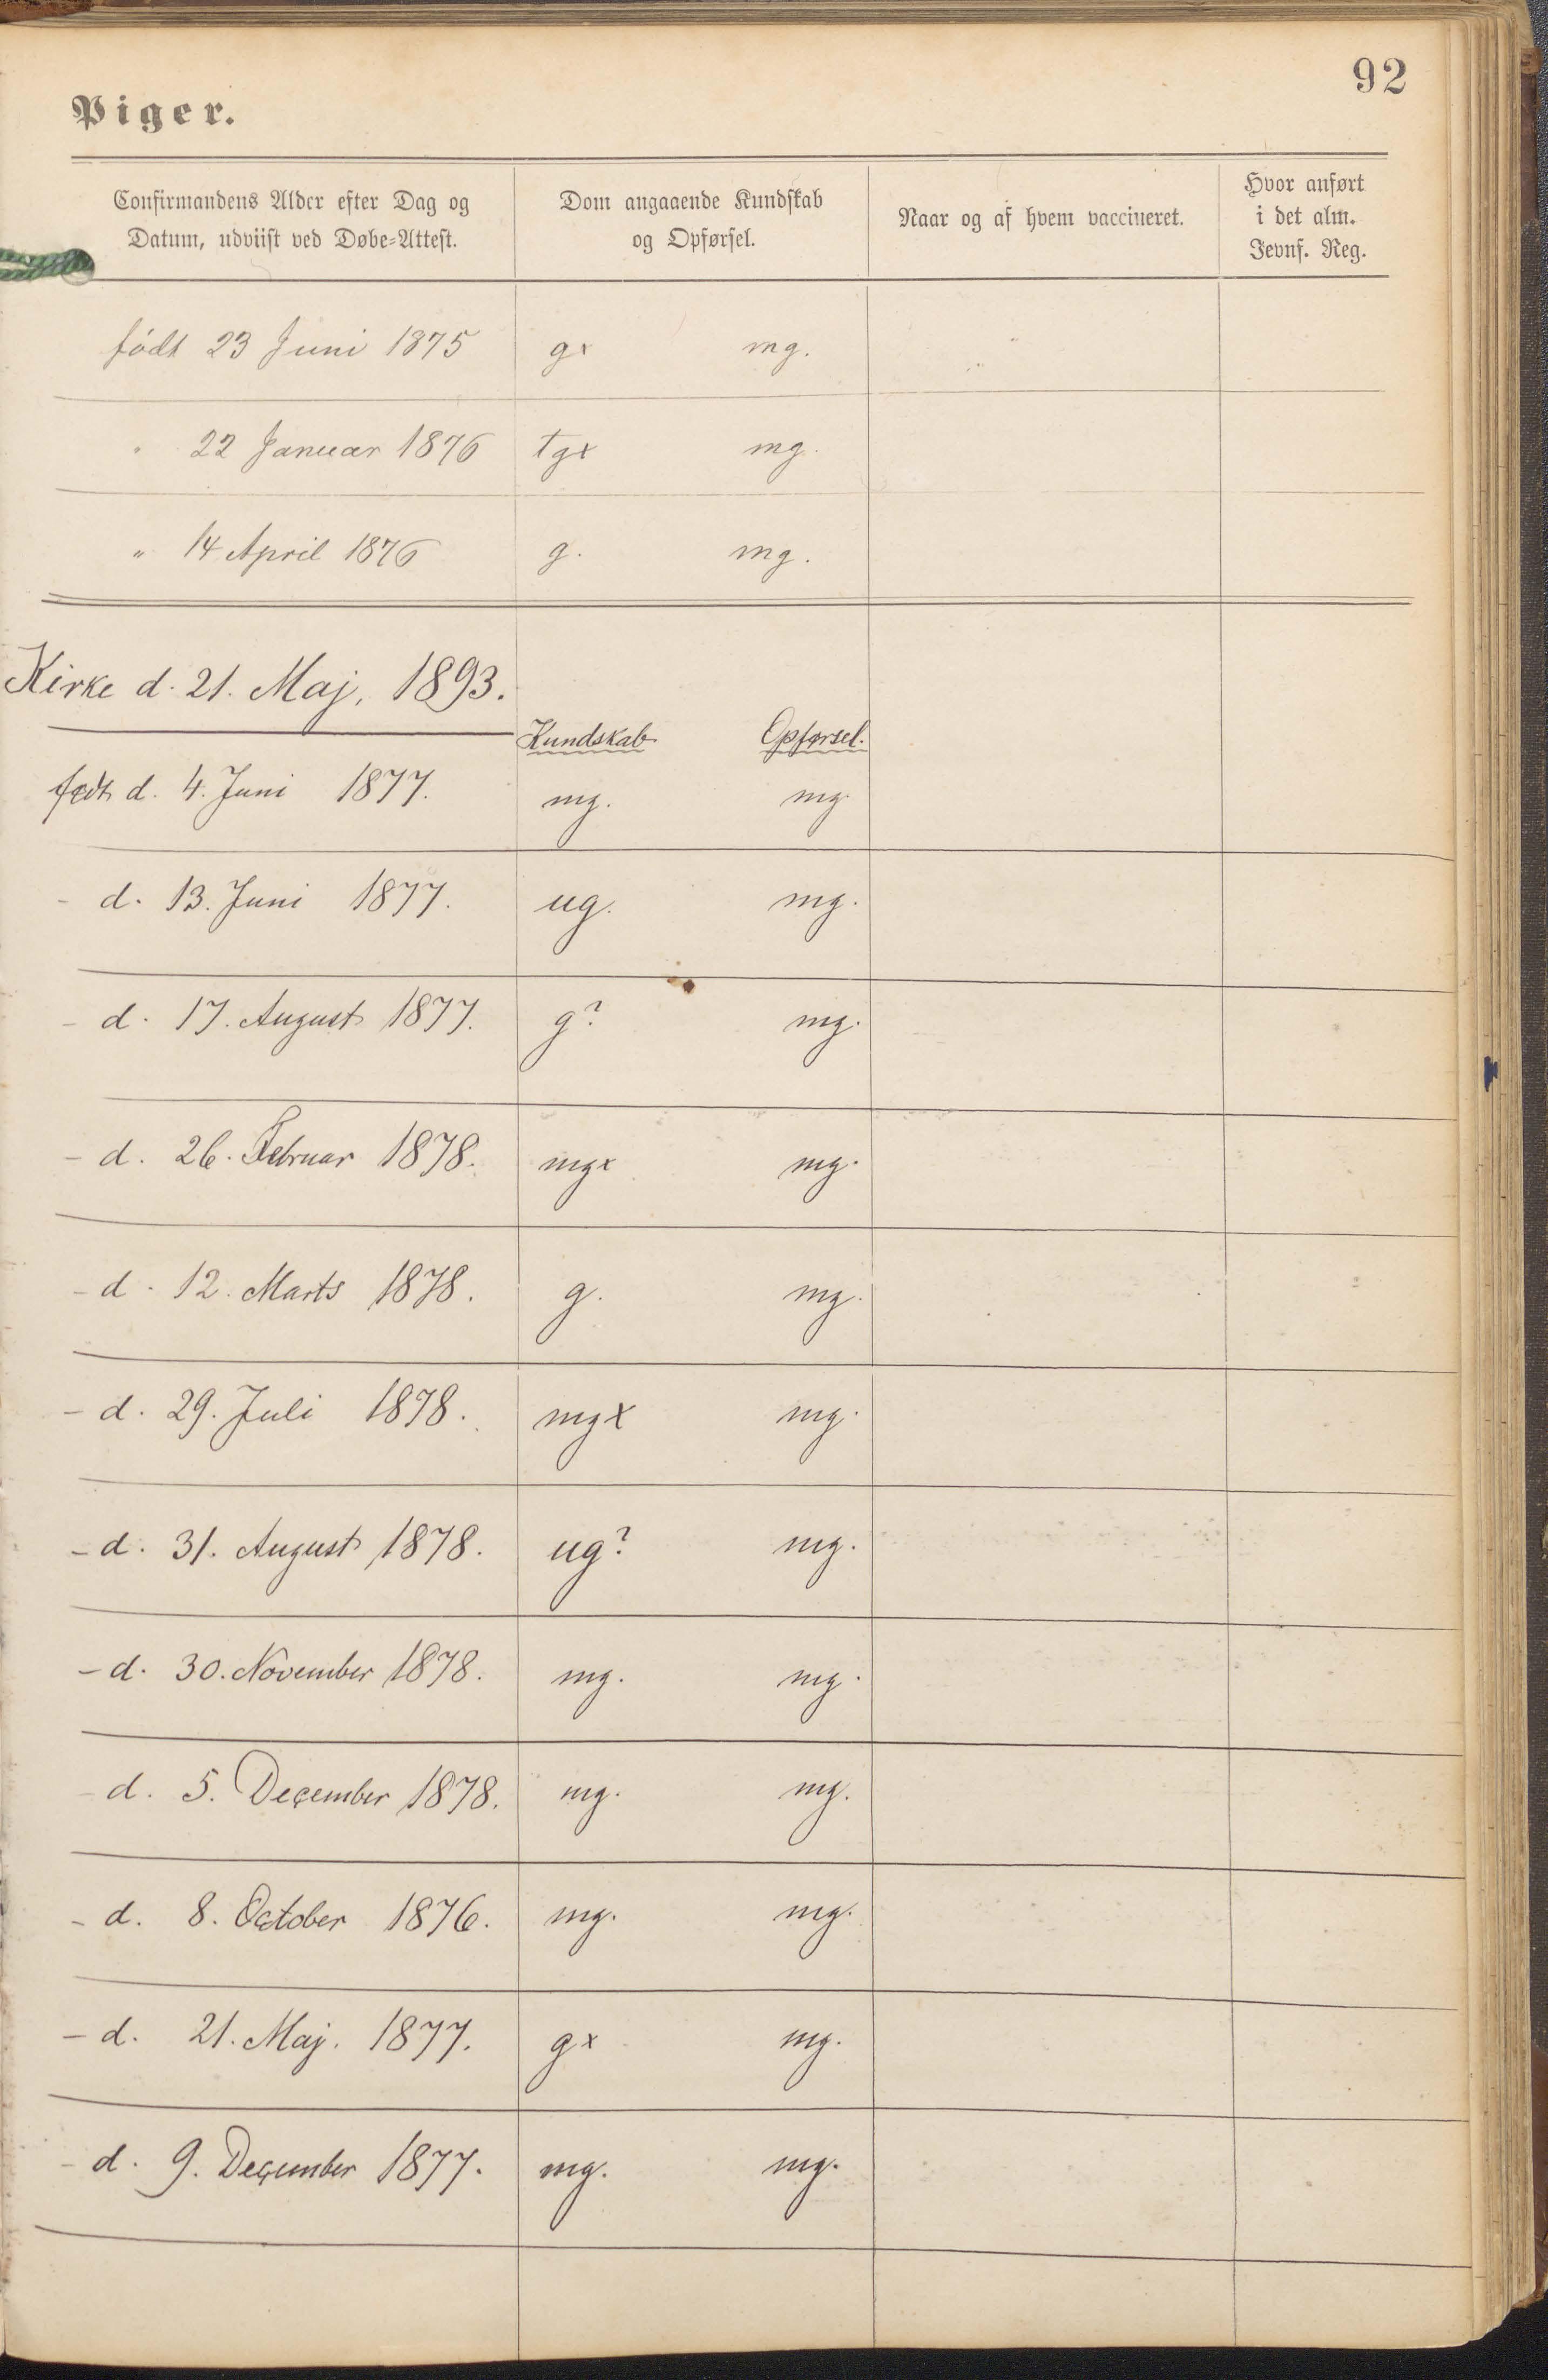 92
Piger.
Confirmandens Alder efter Dag og Datum, udviist ved Døbe-Attest.
Dom angaaende Kundskab og Opførsel.
Naar og af hvem vaccineret.
Hvor anført i det alm. Jevnf. Reg.
födt 23 Juni 1875 gx mg.
" 22 Januar 1876 tgx mg.
" 14 April 1876 g. mg.
Kirke d. 21. Maj, 1893.
Kundskab Opførsel.
født d. 4. Juni 1877. mg. mg.
- d. 13. Juni 1877. ug. mg.
- d. 17. August 1877. g? mg.
- d. 26. Februar 1878. mgx mg.
- d. 12. Marts 1878. g. mg.
- d. 29. Juli 1878. mgx mg.
- d. 31. August 1878. ug? mg.
- d. 30. November 1878. mg. mg.
- d. 5. December 1878. mg. mg.
- d. 8. October 1876. mg. mg.
- d. 21. Maj. 1877. gx mg.
- d. 9. December 1877. mg. mg.